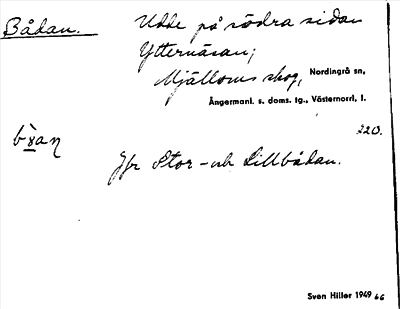 Bådan. Udde på södra sidan
Ytternäsan;
Mjälloms skog, Nordingrå sn,
Ångermanl. s. doms. tg., Västernorrl, l.
220.
Jfr Stor- och Lillbådan.
Sven Hiller 1949 66